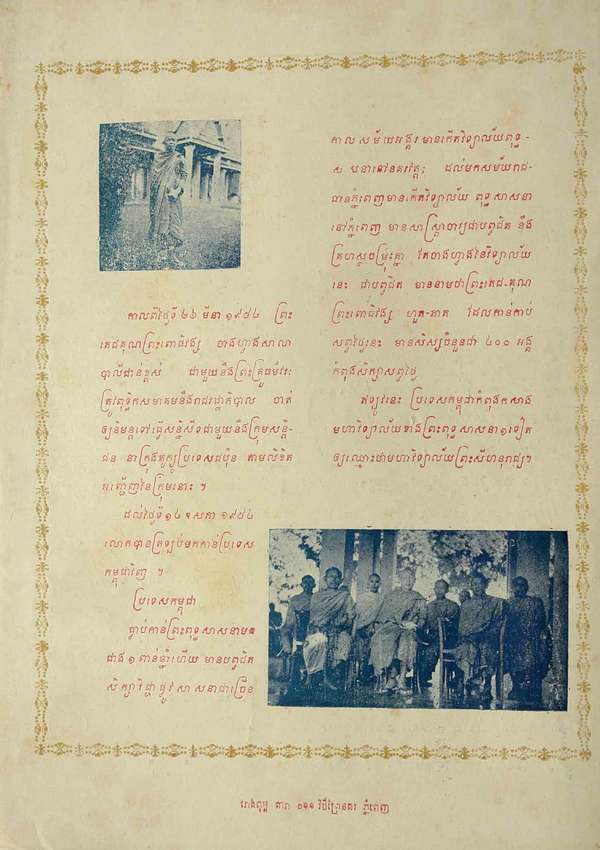 កាលពីថ្ងៃទី ២៦ មីនា ១៩៥៤ ព្រះ
តេជគុណព្រះពោធិវង្ស ចាងហ្វាងសាលា
បាលីជាន់ខ្ពស់ ជាមួយនឹងព្រះគ្រូធម៌វរៈ
ត្រូវពុទ្ធិកសមាគមនឹងរាជរដ្ឋាភិបាល ចាត់
ឲ្យនិមន្តទៅធ្វើសន្និសីទជាមួយនឹងក្រុមសន្តិ-
ជន នាក្រុងតូក្យូប្រទេសជប៉ុន តាមលិខិត
អញ្ជើញនៃក្រុមនោះ ។
ដល់ថ្ងៃទី ១៤ ឧសភា ១៩៥៤
លោកបានត្រឡប់មកកាន់ប្រទេស
កម្ពុជាវិញ ។
ប្រទេសកម្ពុជា
ធ្លាប់កាន់ព្រះពុទ្ធសាសនាមក
ជាង ១ ពាន់ឆ្នាំហើយ មានបព្វជិត
សិក្សាវិជ្ជាផ្លូវសាសនាជាច្រើន
កាលសម័យអង្គរ មានកើតវិទ្យាល័យពុទ្ធ-
សាសនានៅនគរវត្ត; ដល់មកសម័យរាជ-
ធានីភ្នំពេញមានកើតវិទ្យាល័យ ពុទ្ធសាសនា
នៅភ្នំពេញ មានសាស្ត្រាចារ្យជាបព្វជិត នឹង
គ្រហស្ថចម្រុះគ្នា តែចាងហ្វាងនៃវិទ្យាល័យ
នេះ ជាបព្វជិត មាននាមជាព្រះតេជ-គុណ
ព្រះពោធិវង្ស ហួត-តាត ដែលកាន់កាប់
សព្វថ្ងៃនេះ មានសិស្សចំនួនជា ៤០០ អង្គ
កំពុងសិក្សាសព្វថ្ងៃ
ឥឡូវនេះ ប្រទេសកម្ពុជាកំពុងកសាង
មហាវិទ្យាល័យខាងព្រះពុទ្ធសាសនា ១ ទៀត
ឲ្យឈ្មោះថាមហាវិទ្យាល័យព្រះសីហនុរាជ្យ។
រោងពុម្ព តារា ១១១ វិថីព្រៃនគរ ភ្នំពេញ